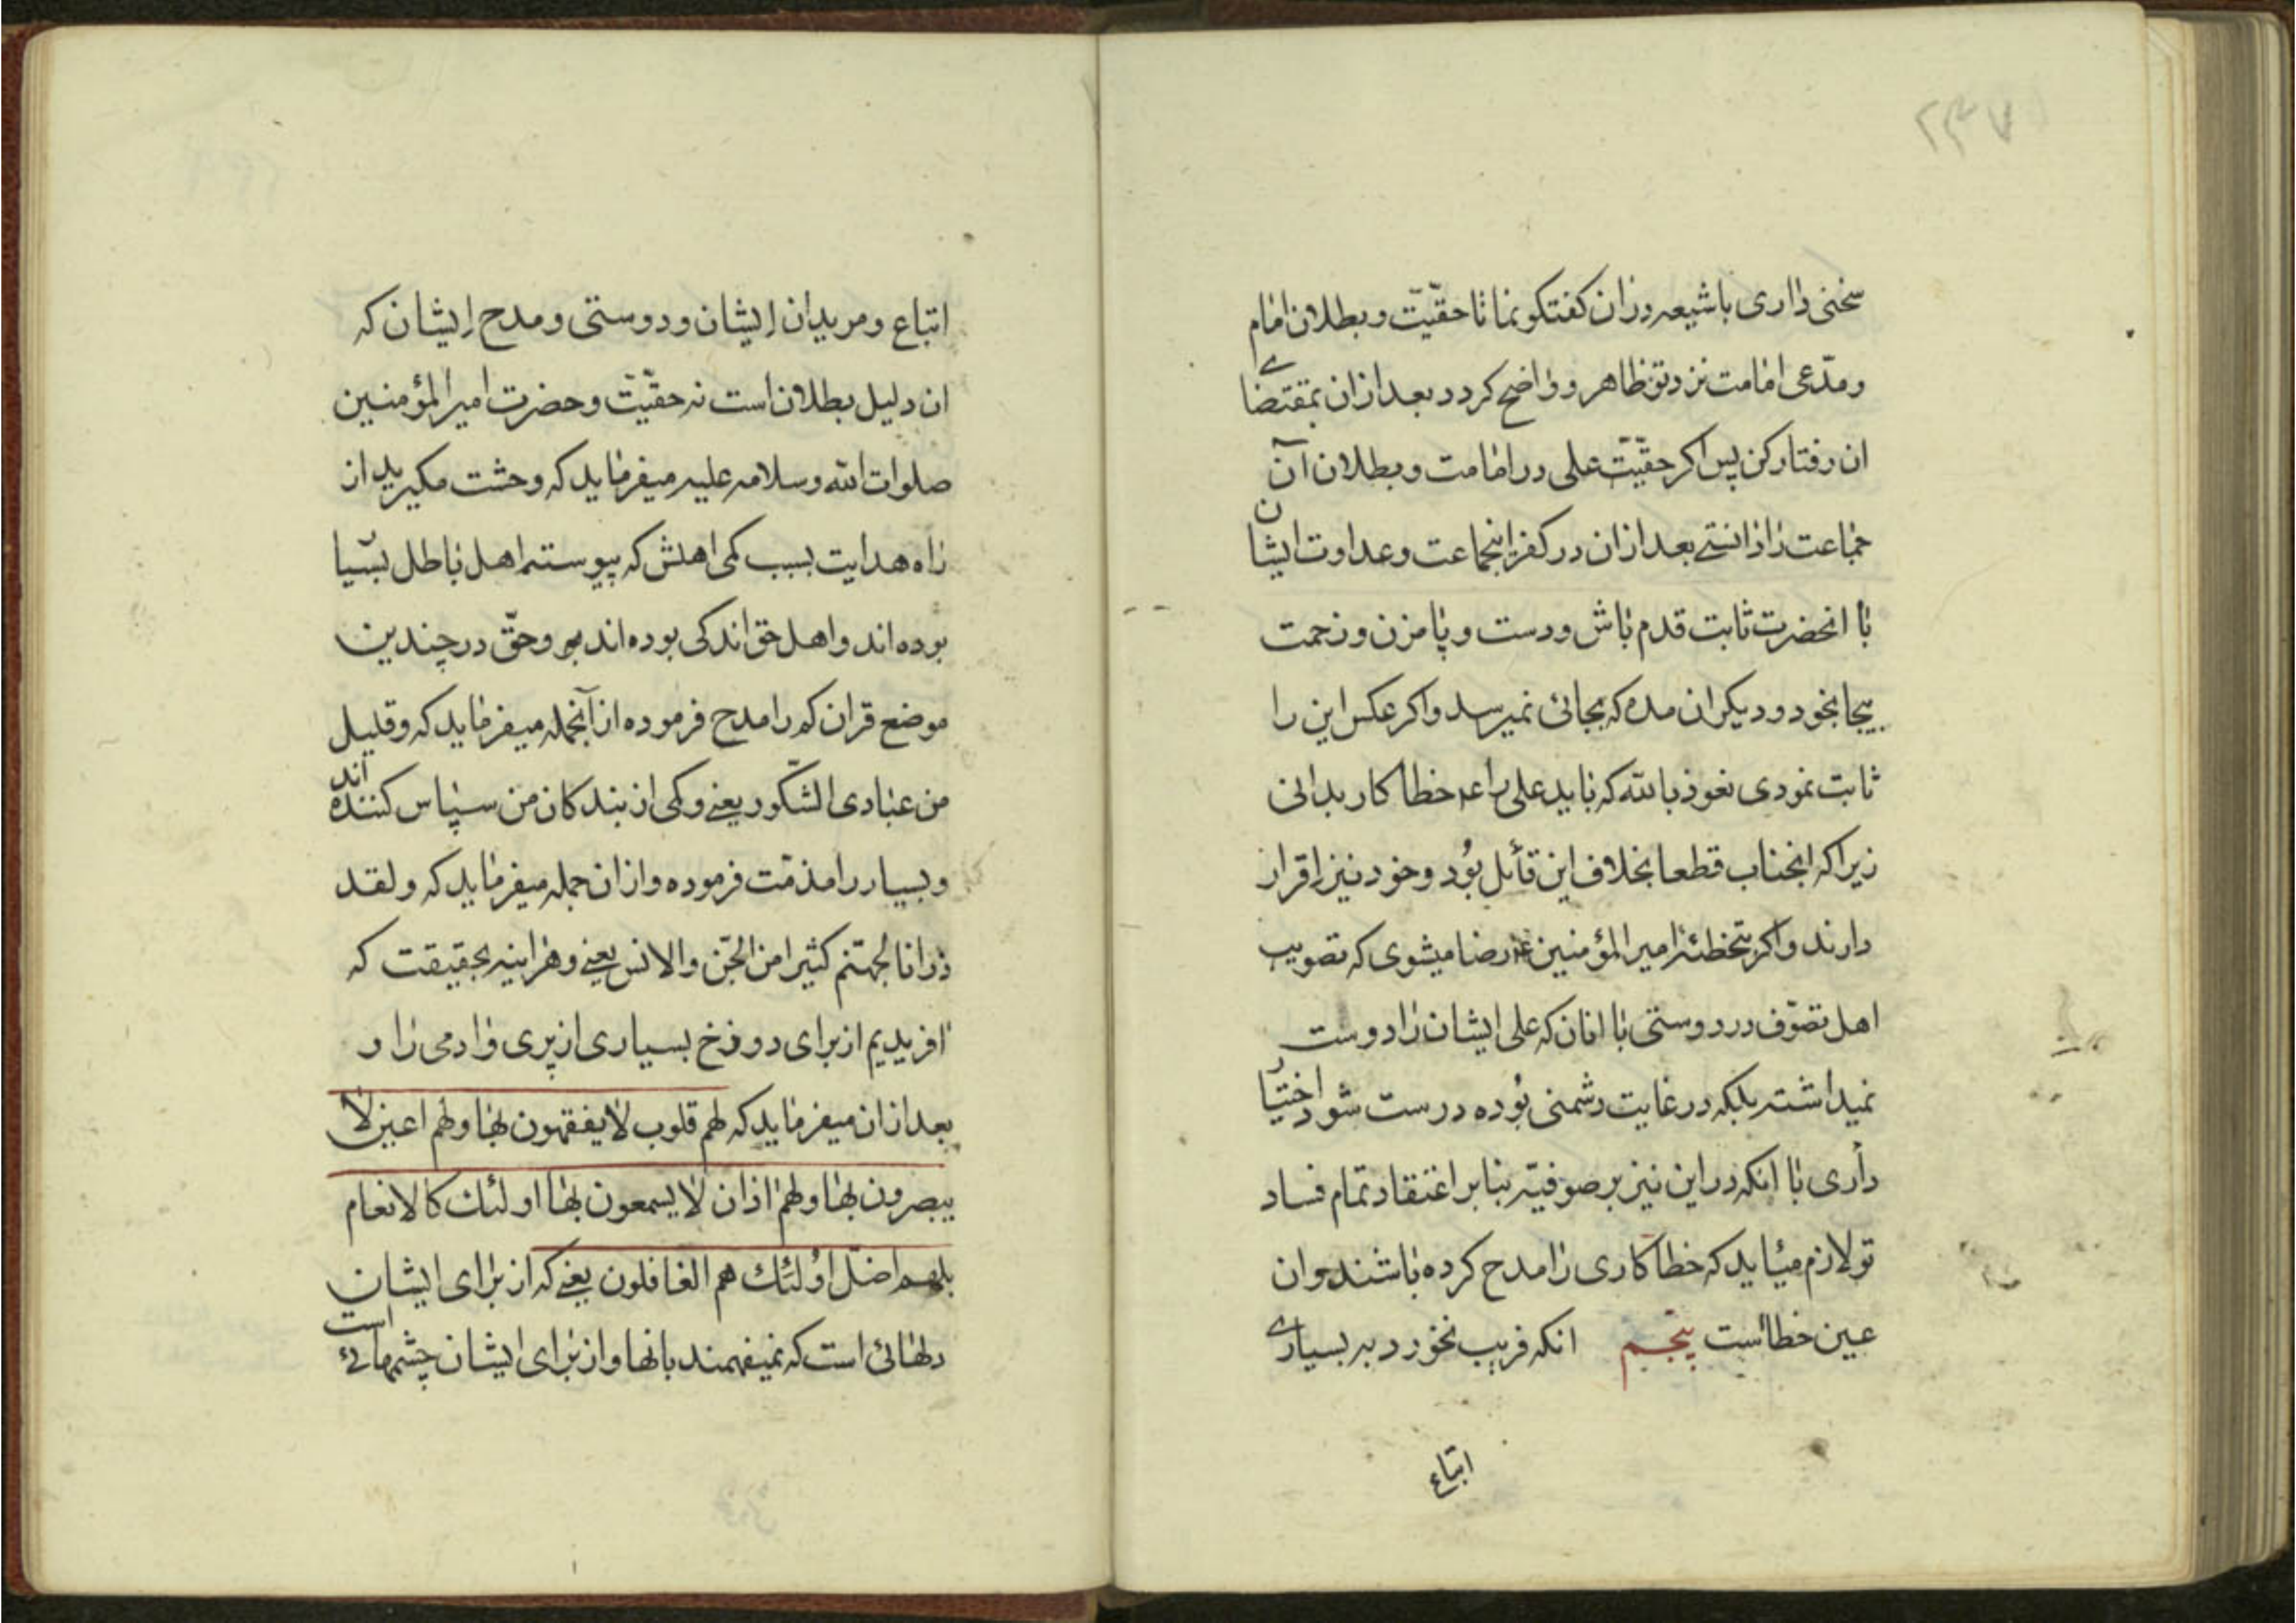 ۲۳۷
سخنی داری باشیعه دران کفتکو نما تا حقیّت و بطلان امام
و مدّعی امامت نزد تو ظاهر و واضح کردد بعد ازان بمقتضای
ان رفتار کن پس اکر حقیّت علی در امامت و بطلان آن
جماعت را دانستی بعد ازان در کفر اینجماعت و عداوت ایشان
با انحضرت ثابت قدم باش و دست و پا مزن و زحمت
بیجا بخود و دیکران مده که بجائی نمیرسد و اکر عکس این را
ثابت نمودی نعوذ بالله که باید علی را ع خطا کار بدانی
زیرا که انجناب قطعا بخلاف این قائل بُود و خود نیز اقرار
دارند و اکر بتخطئه امیر المؤمنین ع رضا میشوی که تصویب
اهل تصوّف در دوستی با انان که علی ایشان را دوست
نمیداشته بلکه در غایت دشمنی بُوده درست شود اختیار
داری با انکه در این نیز بر صوفیّه بنابر اعتقاد تمام فساد
تو لازم میٔاید که خطا کاری را مدح کرده باشند و ان
عین خطا است پنجم انکه فریب نخورد به بسیاری
اتباع
اتباع و مریدان ایشان و دوستی و مدح ایشان که
ان دلیل بطلان است نه حقیّت و حضرت امیر المؤمنین
صلوات الله و سلامه علیه میفرماید که وحشت مکیرید از
راه هدایت بسبب کمی اهلش که پیوسته اهل باطل بسیا
بوده اند و اهل حق اندکی بوده اند و حقّ در چندین
موضع قران کم را مدح فرموده از آنجمله میفرماید که و قلیل
من عبادی الشّکور یعنی و کمی از بندکان من سپاس کننده اند
و بسیار را مذمّت فرموده و ازان جمله میفرماید که و لقد
ذرانا لجهنّم کثیرا من الجّن والانس یعنی و هراینه بحقیقت که
افریدیم از برای دوزخ بسیاری از پری و ادمی را و
بعد ازان میفرماید که لهم قلوب لا یفقهون بها و لهم اعین لا
یبصرون بها و لهم اذان لا یسمعون بها اولئک کالانعام
بلهم اضلّ اوُلئک هم الغافلون یعنی که از برای ایشان
دلهائی است که نمیفهمند بانها و از برای ایشان چشمهائی است